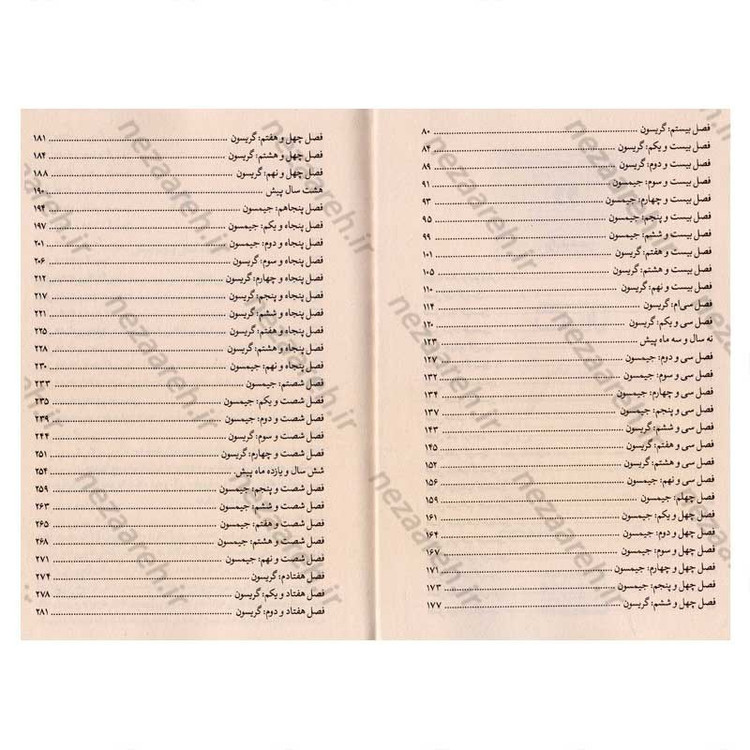 فصل بیستم: گریسون ........ ۸۰
فصل بیست و یکم: گریسون ........ ۸۴
فصل بیست و دوم: گریسون ........ ۸۹
فصل بیست و سوم: جیمسون ........ ۹۱
فصل بیست و چهارم: جیمسون ........ ۹۳
فصل بیست و پنجم: جیمسون ........ ۹۵
فصل بیست و ششم: جیمسون ........ ۹۹
فصل بیست و هفتم: گریسون ........ ۱۰۱
فصل بیست و هشتم: گریسون ........ ۱۰۵
فصل بیست و نهم: گریسون ........ ۱۱۰
فصل سی‌ام: گریسون ........ ۱۱۴
فصل سی و یکم: گریسون ........ ۱۲۰
نه سال و سه ماه پیش ........ ۱۲۳
فصل سی و دوم: جیمسون ........ ۱۲۷
فصل سی و سوم: جیمسون ........ ۱۳۲
فصل سی و چهارم: جیمسون ........ ۱۳۴
فصل سی و پنجم: جیمسون ........ ۱۳۷
فصل سی و ششم: گریسون ........ ۱۴۳
فصل سی و هفتم: گریسون ........ ۱۴۵
فصل سی و هشتم: گریسون ........ ۱۵۲
فصل سی و نهم: جیمسون ........ ۱۵۶
فصل چهلم: جیمسون ........ ۱۵۹
فصل چهل و یکم: جیمسون ........ ۱۶۱
فصل چهل و دوم: جیمسون ........ ۱۶۴
فصل چهل و سوم: جیمسون ........ ۱۶۷
فصل چهل و چهارم: جیمسون ........ ۱۷۱
فصل چهل و پنجم: جیمسون ........ ۱۷۳
فصل چهل و ششم: گریسون ........ ۱۷۷
فصل چهل و هفتم: گریسون ........ ۱۸۱
فصل چهل و هشتم: گریسون ........ ۱۸۴
فصل چهل و نهم: گریسون ........ ۱۸۸
هشت سال پیش ........ ۱۹۰
فصل پنجاهم: جیمسون ........ ۱۹۴
فصل پنجاه و یکم: جیمسون ........ ۱۹۷
فصل پنجاه و دوم: جیمسون ........ ۲۰۱
فصل پنجاه و سوم: گریسون ........ ۲۰۶
فصل پنجاه و چهارم: گریسون ........ ۲۱۲
فصل پنجاه و پنجم: گریسون ........ ۲۱۷
فصل پنجاه و ششم: گریسون ........ ۲۲۱
فصل پنجاه و هفتم: گریسون ........ ۲۲۵
فصل پنجاه و هشتم: گریسون ........ ۲۲۸
فصل پنجاه و نهم: جیمسون ........ ۲۳۰
فصل شصتم: جیمسون ........ ۲۳۳
فصل شصت و یکم: جیمسون ........ ۲۳۵
فصل شصت و دوم: جیمسون ........ ۲۳۹
فصل شصت و سوم: گریسون ........ ۲۴۴
فصل شصت و چهارم: گریسون ........ ۲۵۱
شش سال و یازده ماه پیش ........ ۲۵۴
فصل شصت و پنجم: جیمسون ........ ۲۵۹
فصل شصت و ششم: جیمسون ........ ۲۶۳
فصل شصت و هفتم: جیمسون ........ ۲۶۵
فصل شصت و هشتم: جیمسون ........ ۲۶۸
فصل شصت و نهم: جیمسون ........ ۲۷۱
فصل هفتادم: گریسون ........ ۲۷۴
فصل هفتاد و یکم: گریسون ........ ۲۷۸
فصل هفتاد و دوم: گریسون ........ ۲۸۱
nezaareh.ir